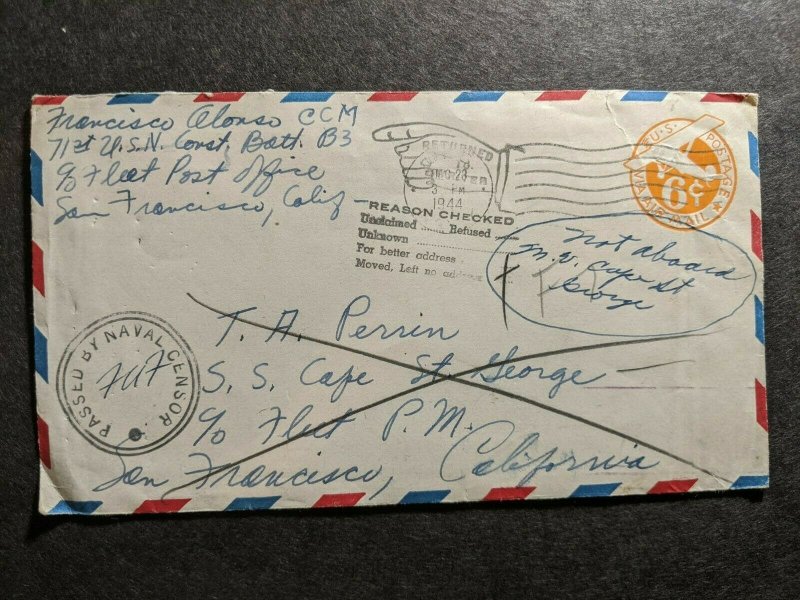 Francisco Alonso CCM
71st U.S.N. Const. Batt. B3
c/o Fleet Post Office
San Francisco, Calif
RETURNED
3 PM
1944
REASON CHECKED
Unclaimed ...... Refused ......
Unknown ......
For better address ......
Moved, Left no address
U.S. POSTAGE
6¢
VIA AIR MAIL
Not aboard
M.V. Cape St
George
PASSED BY NAVAL CENSOR
T. A. Perrin
S. S. Cape St. George
c/o Fleet P.M.
San Francisco, California